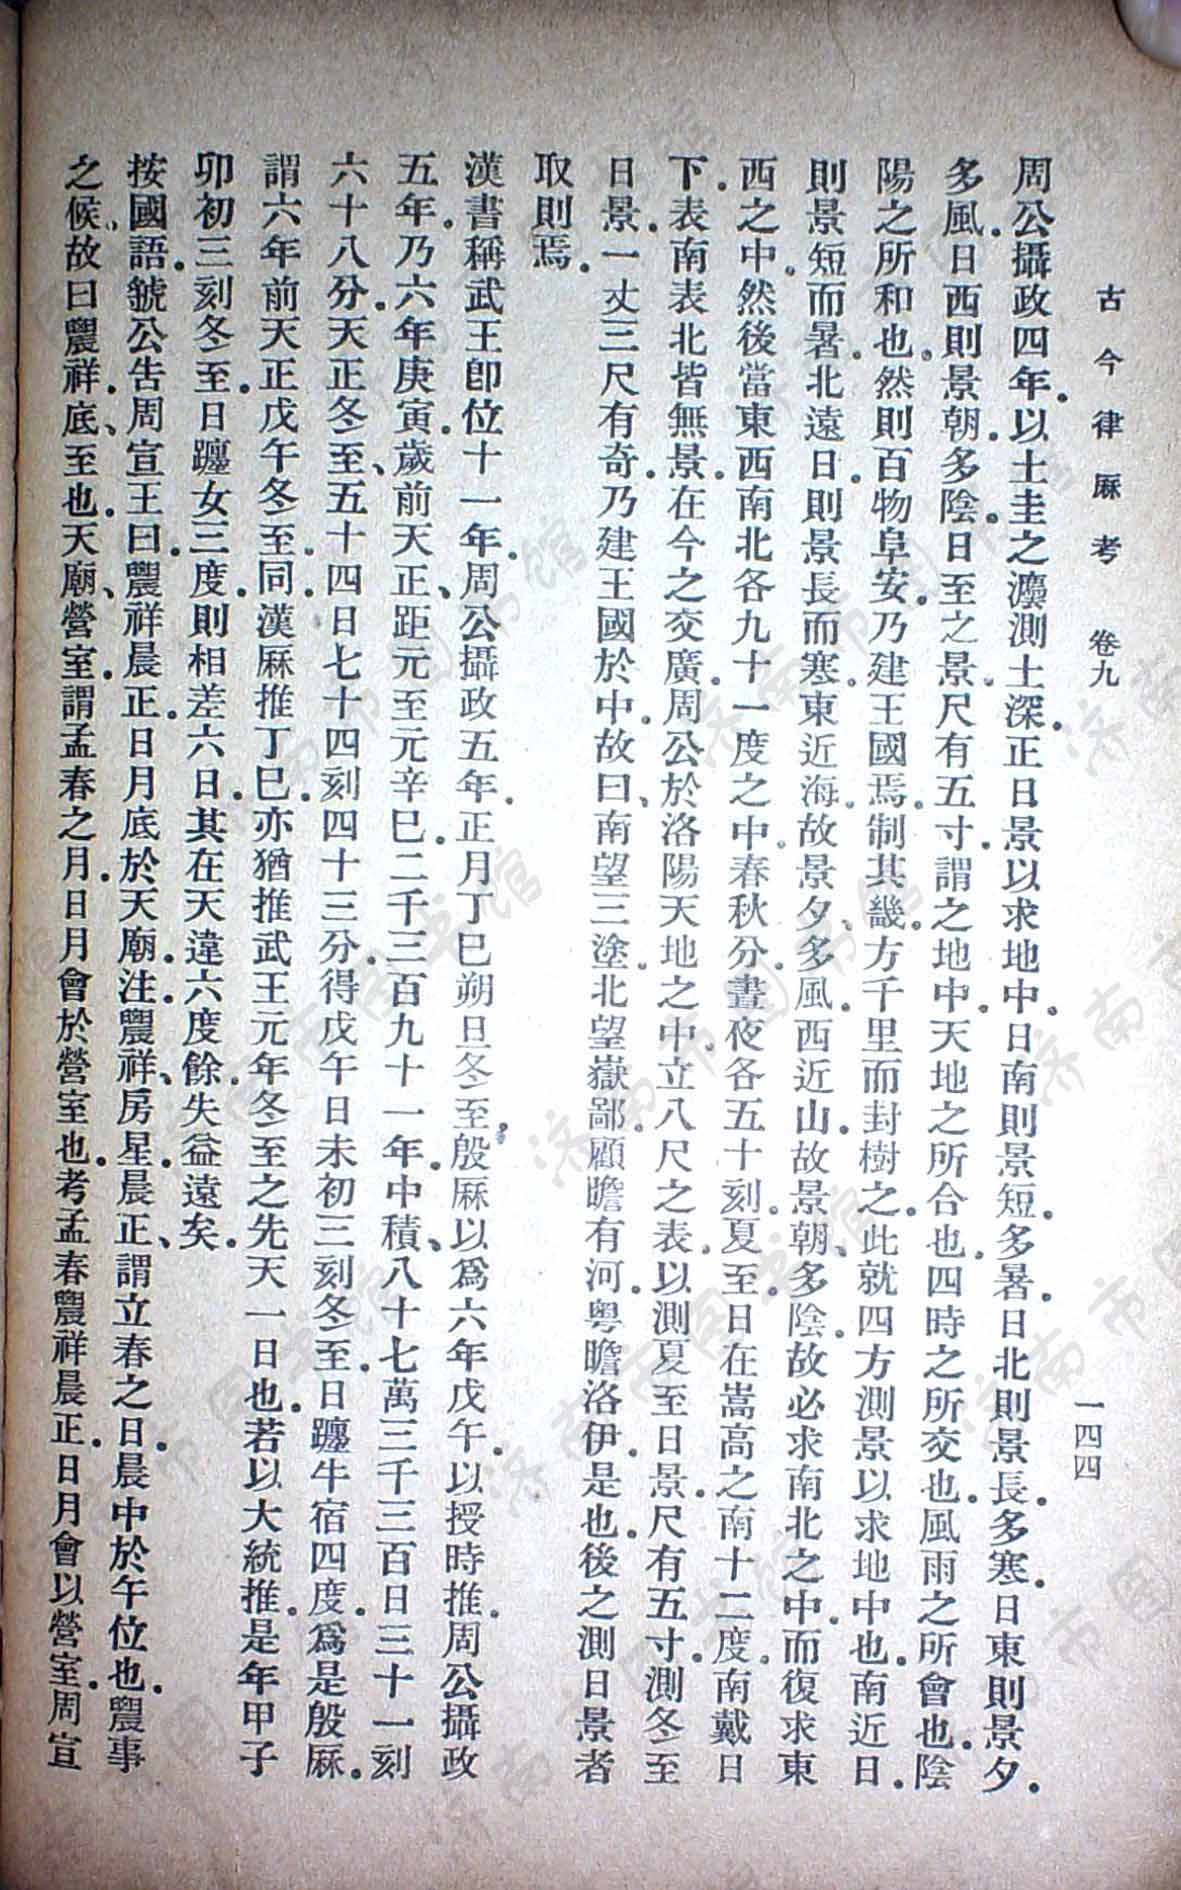 古今律厤考　卷九　一四四
周公攝政四年。以土圭之灋測土深。正日景以求地中。日南則景短。多暑。日北則景長。多寒。日東則景夕。
多風。日西則景朝。多陰。日至之景。尺有五寸。謂之地中。天地之所合也。四時之所交也。風雨之所會也。陰
陽之所和也。然則百物阜安。乃建王國焉。制其畿。方千里而封樹之。此就四方測景以求地中也。南近日。
則景短而暑。北遠日。則景長而寒。東近海。故景夕、多風。西近山。故景朝、多陰。故必求南北之中。而復求東
西之中。然後當東西南北各九十一度之中。春秋分。晝夜各五十刻。夏至日在嵩高之南十二度。南戴日
下。表南表北皆無景。在今之交廣。周公於洛陽天地之中。立八尺之表。以測夏至日景。尺有五寸。測冬至
日景。一丈三尺有奇。乃建王國於中。故曰、南望三塗。北望嶽鄙。顧瞻有河。粵瞻洛伊。是也。後之測日景者
取則焉。
漢書稱武王卽位十一年。周公攝政五年。正月丁巳朔旦冬至。殷厤以爲六年戊午。以授時推。周公攝政
五年。乃六年庚寅。歲前天正、距元至元辛巳。二千三百九十一年。中積、八十七萬三千三百日三十一刻
六十八分。天正冬至、五十四日七十四刻四十三分。得戊午日未初三刻冬至。日躔牛宿四度。爲是殷厤。
謂六年前天正戊午冬至。同。漢厤推丁巳。亦猶推武王元年冬至之先天一日也。若以大統推。是年甲子
卯初三刻冬至。日躔女三度。則相差六日。其在天違六度餘。失益遠矣。
按國語。虢公告周宣王曰。農祥晨正。日月底於天廟。注。農祥、房星。晨正、謂立春之日。晨中於午位也。農事
之候。故曰農祥。底、至也。天廟、營室。謂孟春之月。日月會於營室也。考孟春農祥晨正。日月會以營室。周宣